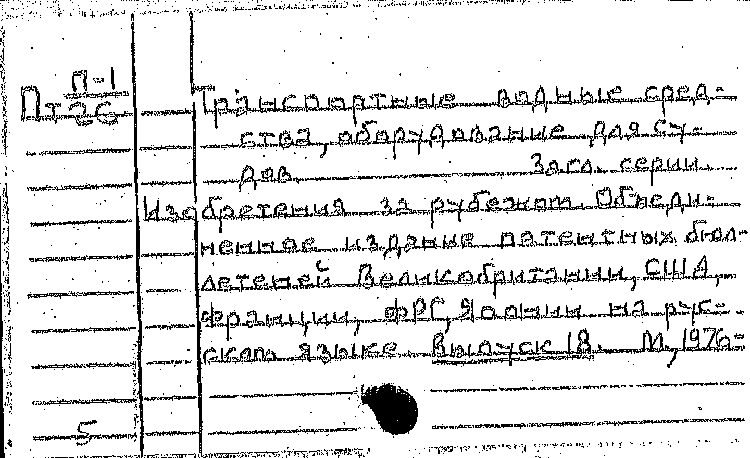 П-1
Пт 26
Транспортные водные сред-
ства, оборудование для су-
дов. Загл. серии.
Изобретения за рубежом. Объеди-
ненное издание патентных бюл-
летеней Великобритании, США,
Франции, ФРГ, Японии на рус-
ском языке. Выпуск 18. М., 1976-
5